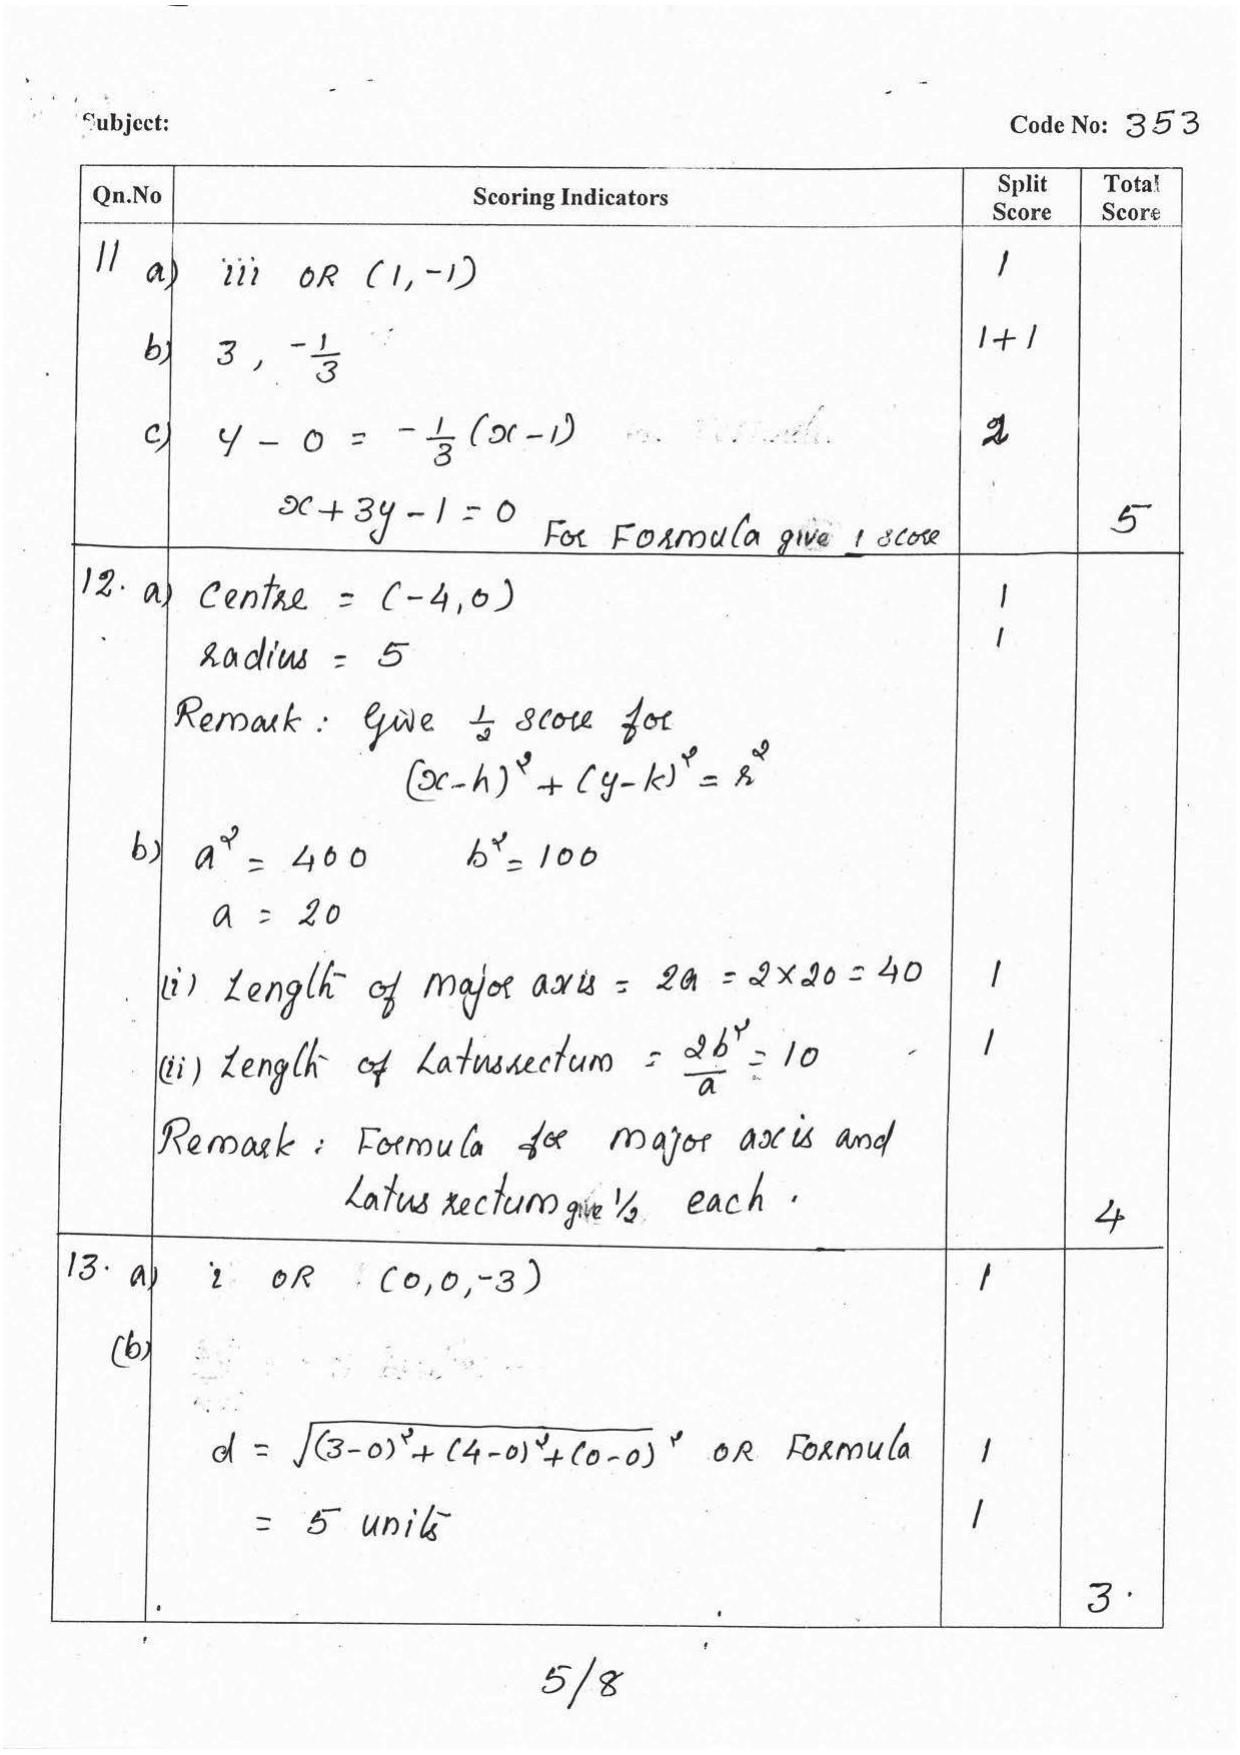 Subject:
Code No: 353
Qn.No Scoring Indicators Split Score Total Score
11 a) iii OR (1,-1) 1
b) 3, -1/3 1+1
c) y - 0 = -1/3 (x-1) 2
x+3y-1=0 For Formula give 1 score 5
12. a) Centre = (-4,0) 1
radius = 5 1
Remark: Give 1/2 score for
(x-h)² + (y-k)² = r²
b) a² = 400 b² = 100
a = 20
(i) Length of major axis = 2a = 2×20 = 40 1
(ii) Length of Latusrectum = 2b²/a = 10 1
Remark: Formula for major axis and
Latus rectum give 1/2 each. 4
13. a) i OR (0,0,-3) 1
(b)
d = √(3-0)²+(4-0)²+(0-0)² OR Formula 1
= 5 units 1
3.
5/8